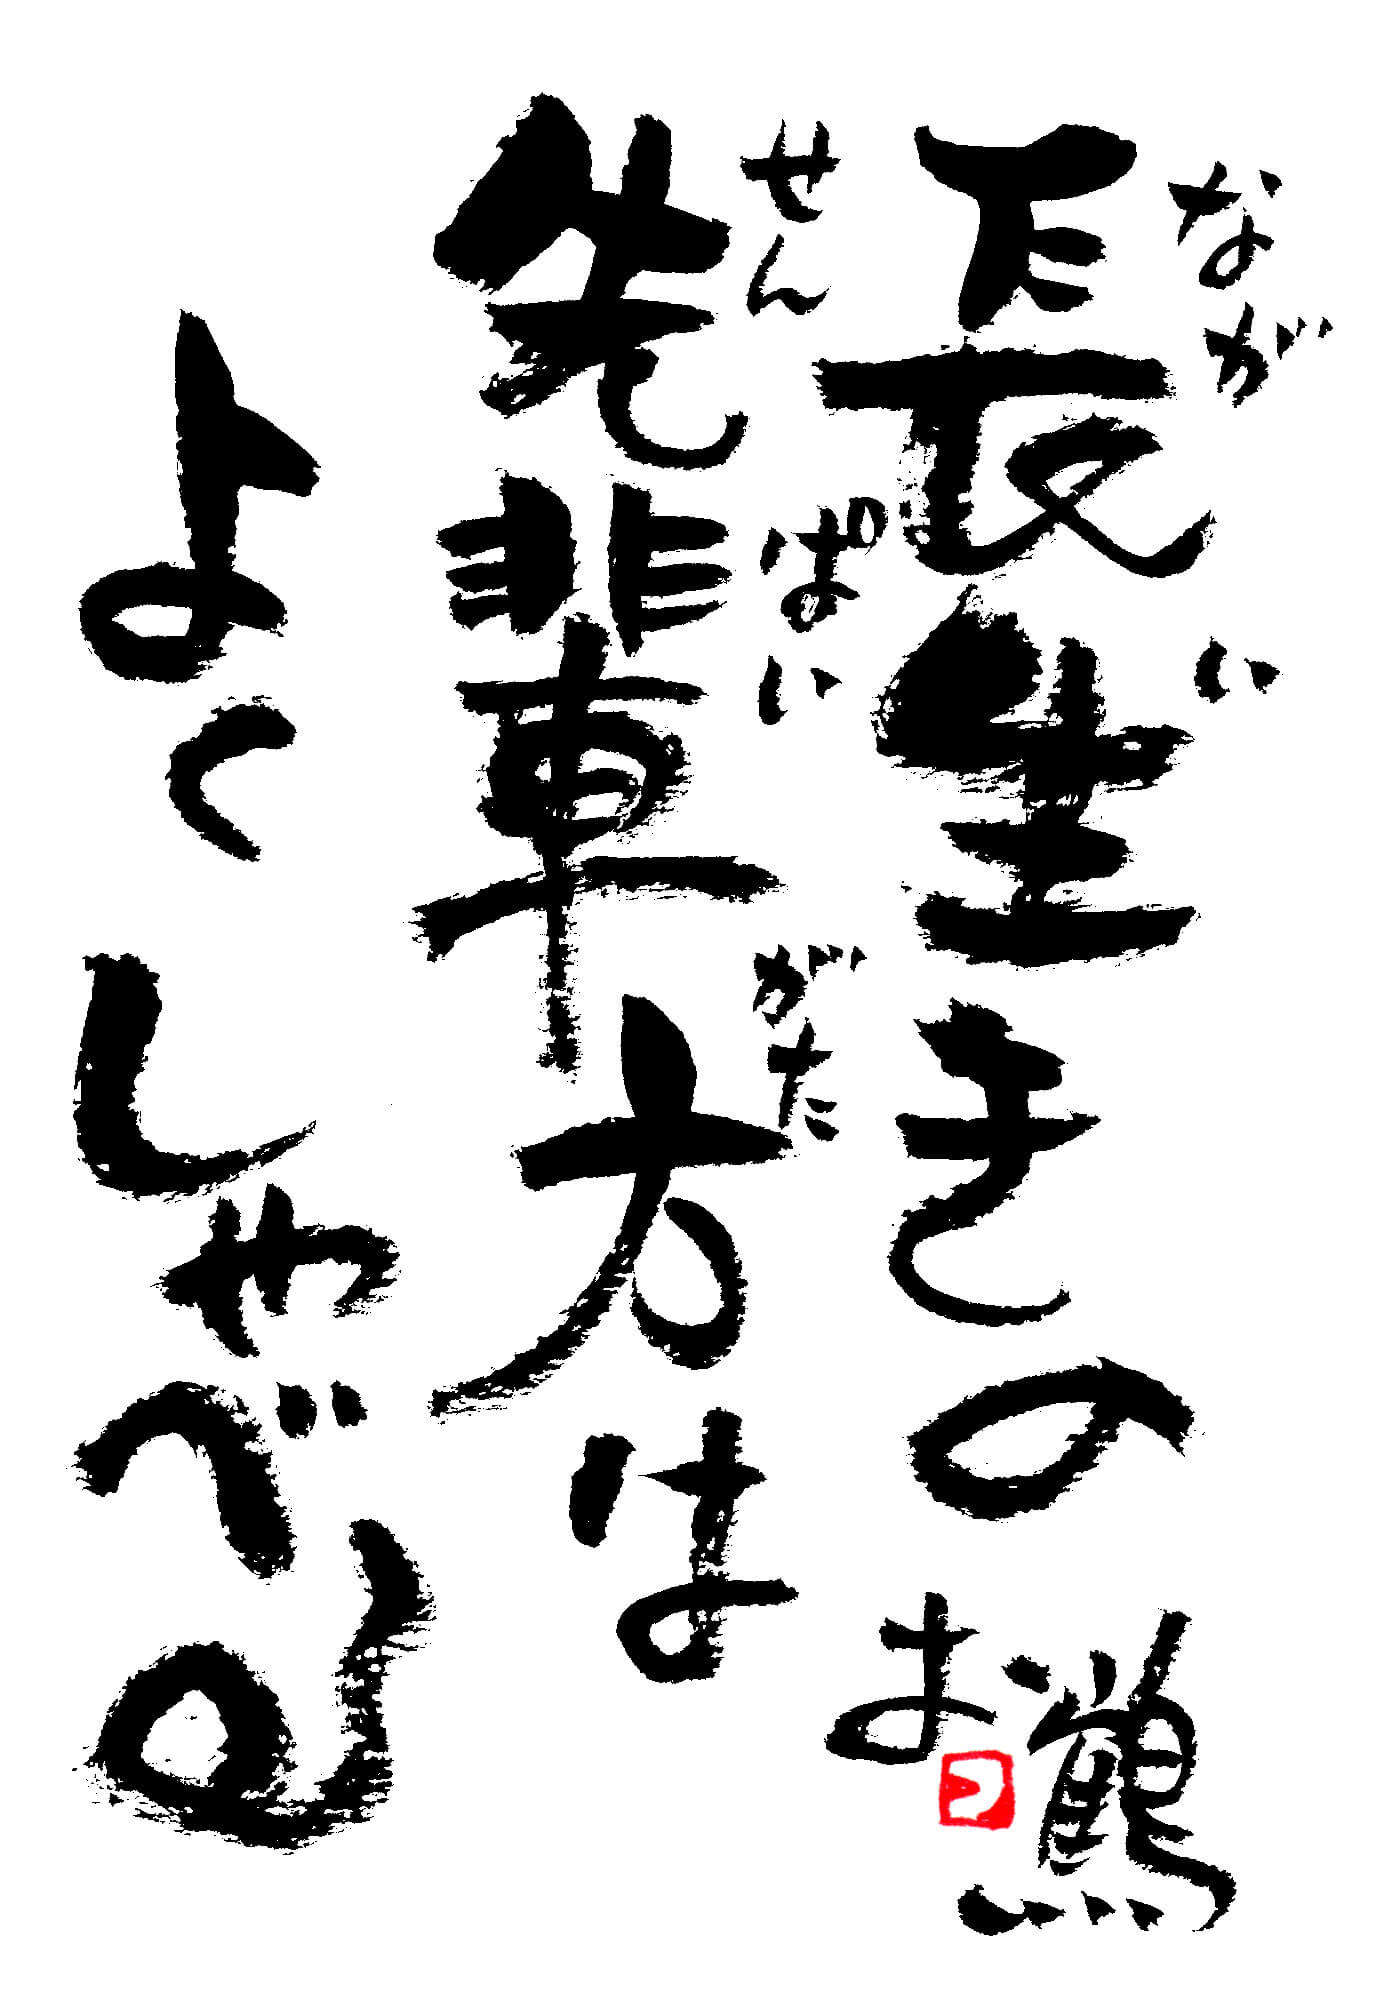 長生きの
ながい
先輩方は
せんぱいがた
よくしゃべる
鶴
よ